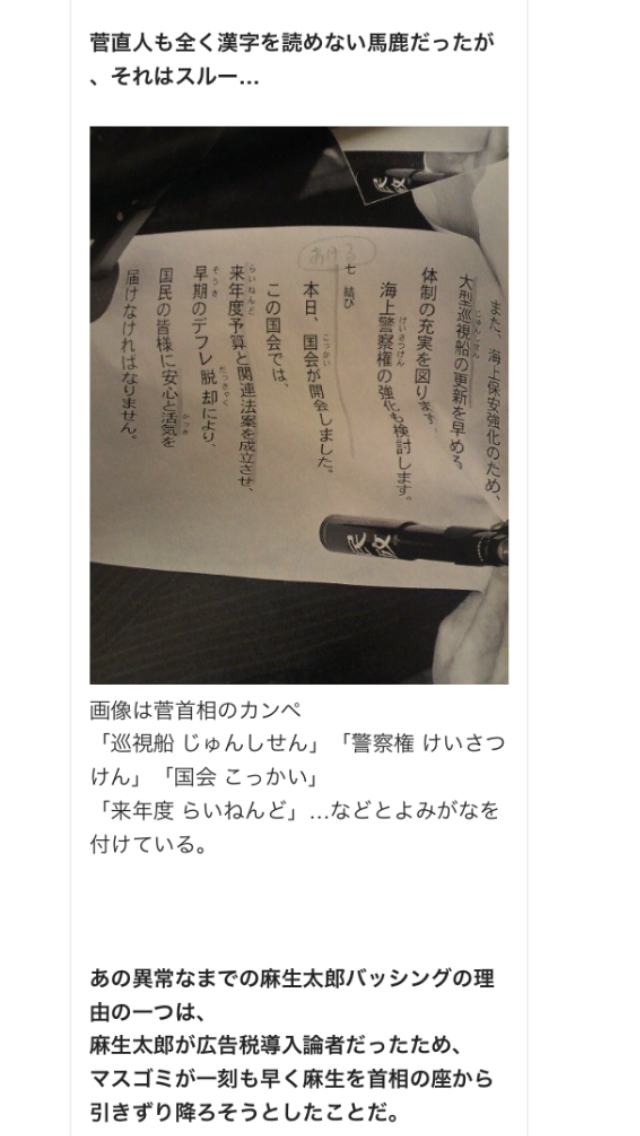 菅直人も全く漢字を読めない馬鹿だったが
、それはスルー…
また、海上保安強化のため、
大型巡視船の更新を早める
じゅんしせん
体制の充実を図ります。
海上警察権の強化も検討します。
けいさつけん
あける
七 結び
本日、国会が開会しました。
こっかい
この国会では、
来年度予算と関連法案を成立させ、
らいねんど
早期のデフレ脱却により、
そうき
だっきゃく
国民の皆様に安心と活気を
かっき
届けなければなりません。
画像は菅首相のカンペ
「巡視船 じゅんしせん」「警察権 けいさつ
けん」「国会 こっかい」
「来年度 らいねんど」…などとよみがなを
付けている。
あの異常なまでの麻生太郎バッシングの理
由の一つは、
麻生太郎が広告税導入論者だったため、
マスゴミが一刻も早く麻生を首相の座から
引きずり降ろそうとしたことだ。